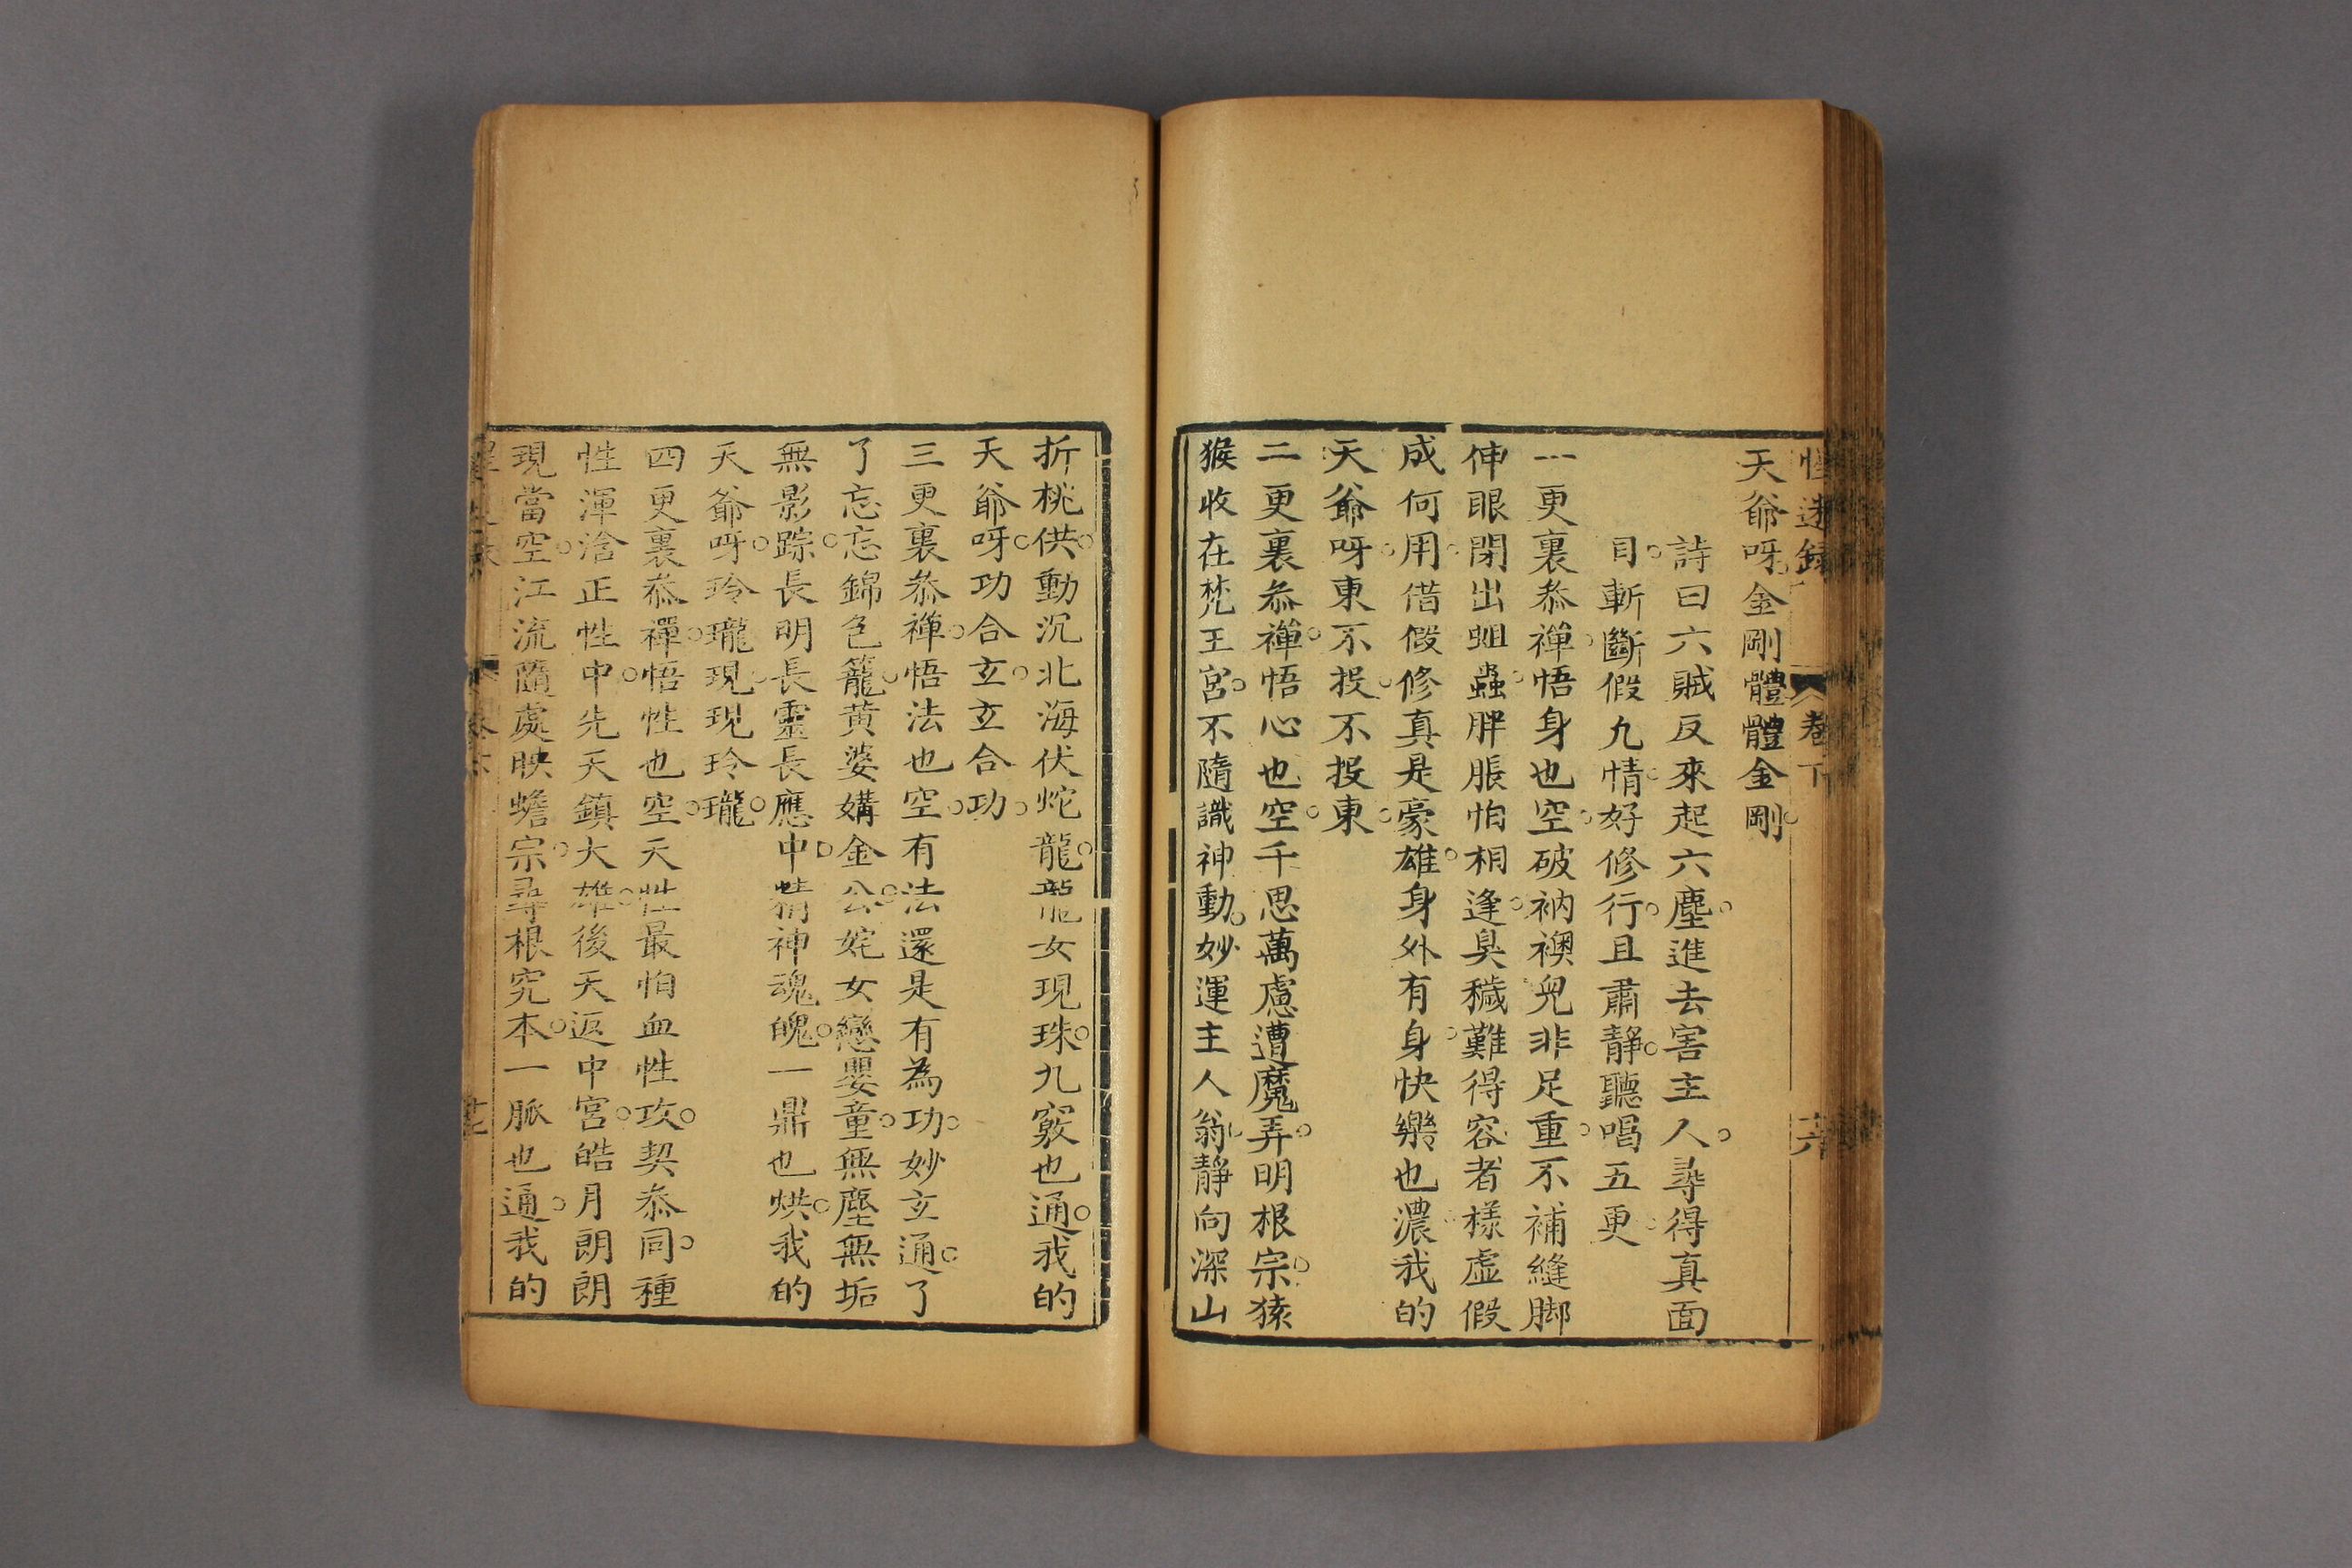 迷錄 卷下 十六
天爺呀金剛體體金剛。
詩曰六賊反來起六塵。進去害主人。尋得真面
目。斬斷假九情。好修行。且肅靜。聽唱五更。
一更裏叅禪。悟身也空。破衲襖兒非足重。不補縫脚
伸眼閉出蛆蟲。胖脹怕相逢。臭穢難得容者樣虛假
成何用。借假修真是豪雄。身外有身。快樂也濃。我的
天爺呀。東不投。不投東。
二更裏叅禪。悟心也空。千思萬慮遭魔弄。明根宗。猿
猴收在梵王宮。不隨識神動。妙運主人翁。靜向深山
折桃供。動沉北海伏蛇龍。龍女現珠。九竅也通。我的
天爺呀。功合玄。玄合功。
三更裏叅禪。悟法也空。有法還是有為功。妙玄通。了
了忘忘錦色籠。黄婆媾金公。姹女戀嬰童。無塵無垢
無影踪。長明長靈長應中。精神魂魄。一鼎也烘。我的
天爺呀。玲瓏現。現玲瓏。
四更裏叅禪。悟性也空。天性最怕血性攻。契叅同。種
性渾淪正性中。先天鎮大雄。後天返中宮。皓月朗朗
現當空。江流隨處映蟾宗。尋根究本。一脈也通。我的